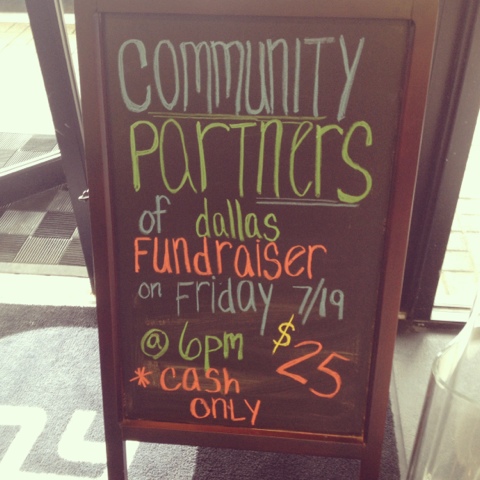 COMMUNITY
PARTNERS
of dallas
FUNDRAISER
on FRIDAY 7/19
@ 6pm $25
* cash
ONLY